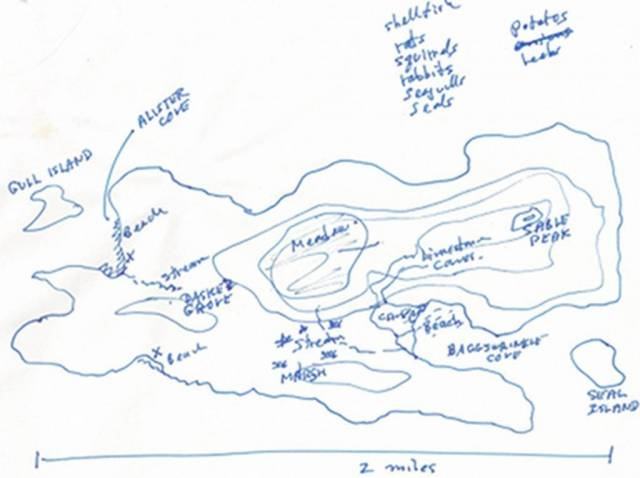 shellfish
rats
squirrels
rabbits
seagulls
seals
potatos
leeks
ALISTER
COVE
GULL ISLAND
Beach
X
stream
BASKET
GROVE
Meadow
Limestone
Caves
SABLE
PEAK
Beach
BAGGYWRINKLE
COVE
Stream
MARSH
X
Beach
SEAL
ISLAND
2 miles